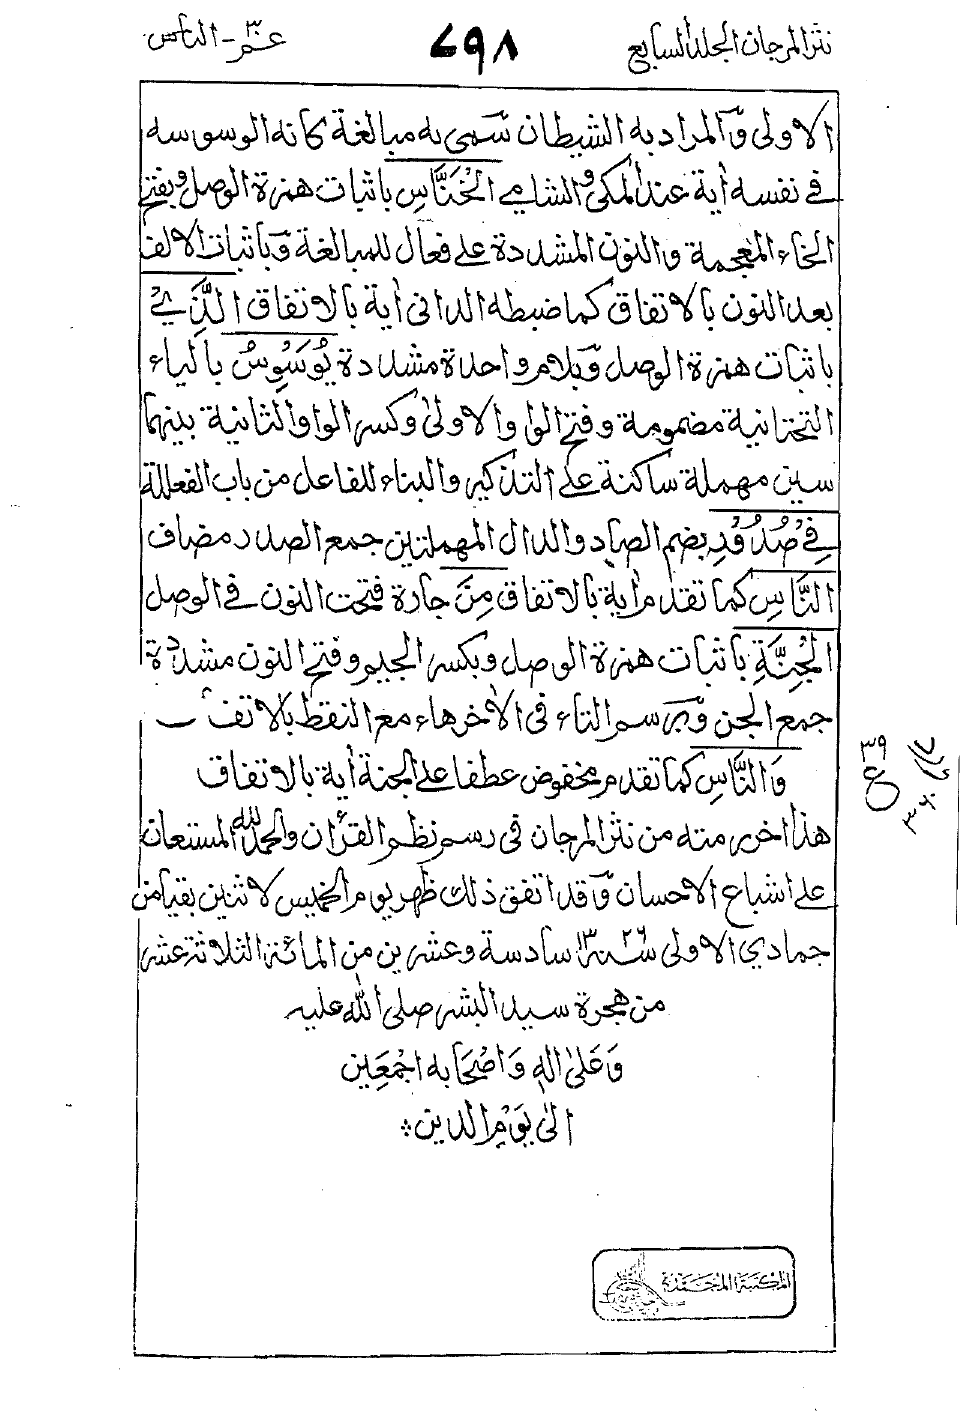 نثر المرجان المجلد السابع
٧٩٨
عم٣٠ - الناس
الاولى و المراد به الشيطان سمى به مبالغة كانه الوسوسه
فى نفسه اٰية عند المكى و الشامى الْخَنَّاسِ باثبات همزة الوصل و بفتح
الخاء المعجمة والنون المشددة على فعال للمبالغة و باثبات الالف
بعد النون بالاتفاق كما ضبطه الدانى اٰية بالاتفاق الَّذِىْ
باثبات همزة الوصل و بلام واحدة مشددة يُوَسْوِسُ بالياء
التحتانية مضمومة و فتح الواو الاولى و كسر الواو الثانية بينهما
سين مهملة ساكنة على التذكير والبناء للفاعل من باب الفعللة
فِىْ صُدُوْرِ بضم الصاد والدال المهملتين جمع الصدر مضاف
النَّاسِ كما تقدم اٰية بالاتفاق مِنَ جارة فتحت النون فى الوصل
الْجِنَّةِ باثبات همزة الوصل و بكسر الجيم و فتح النون مشددة
جمع الجن و برسم التاء فى الاٰخر هاء مع النقط بالاتفاق
وَالنَّاسِ كما تقدم مخفوض عطفا على الجنة اٰية بالاتفاق
هذا اخر ما رمته من نثر المرجان فى رسم نظم القراٰن والحمد لله المستعان
على اشباع الاحسان و قد اتفق ذلك ظهر يوم الخميس لاثنين بقيا من
جمادي الاولى سنة ١٣٢٦ سادسة وعشرين من المائة الثلاثة عشر
من هجرة سيد البشر صلى الله عليه
وَعَلىٰ اٰلهٖ وَاَصْحَابه اجْمَعِين
الىٰ يَوْمِ الدين
٣٩
٣٦٠
المكتبة المحمدية